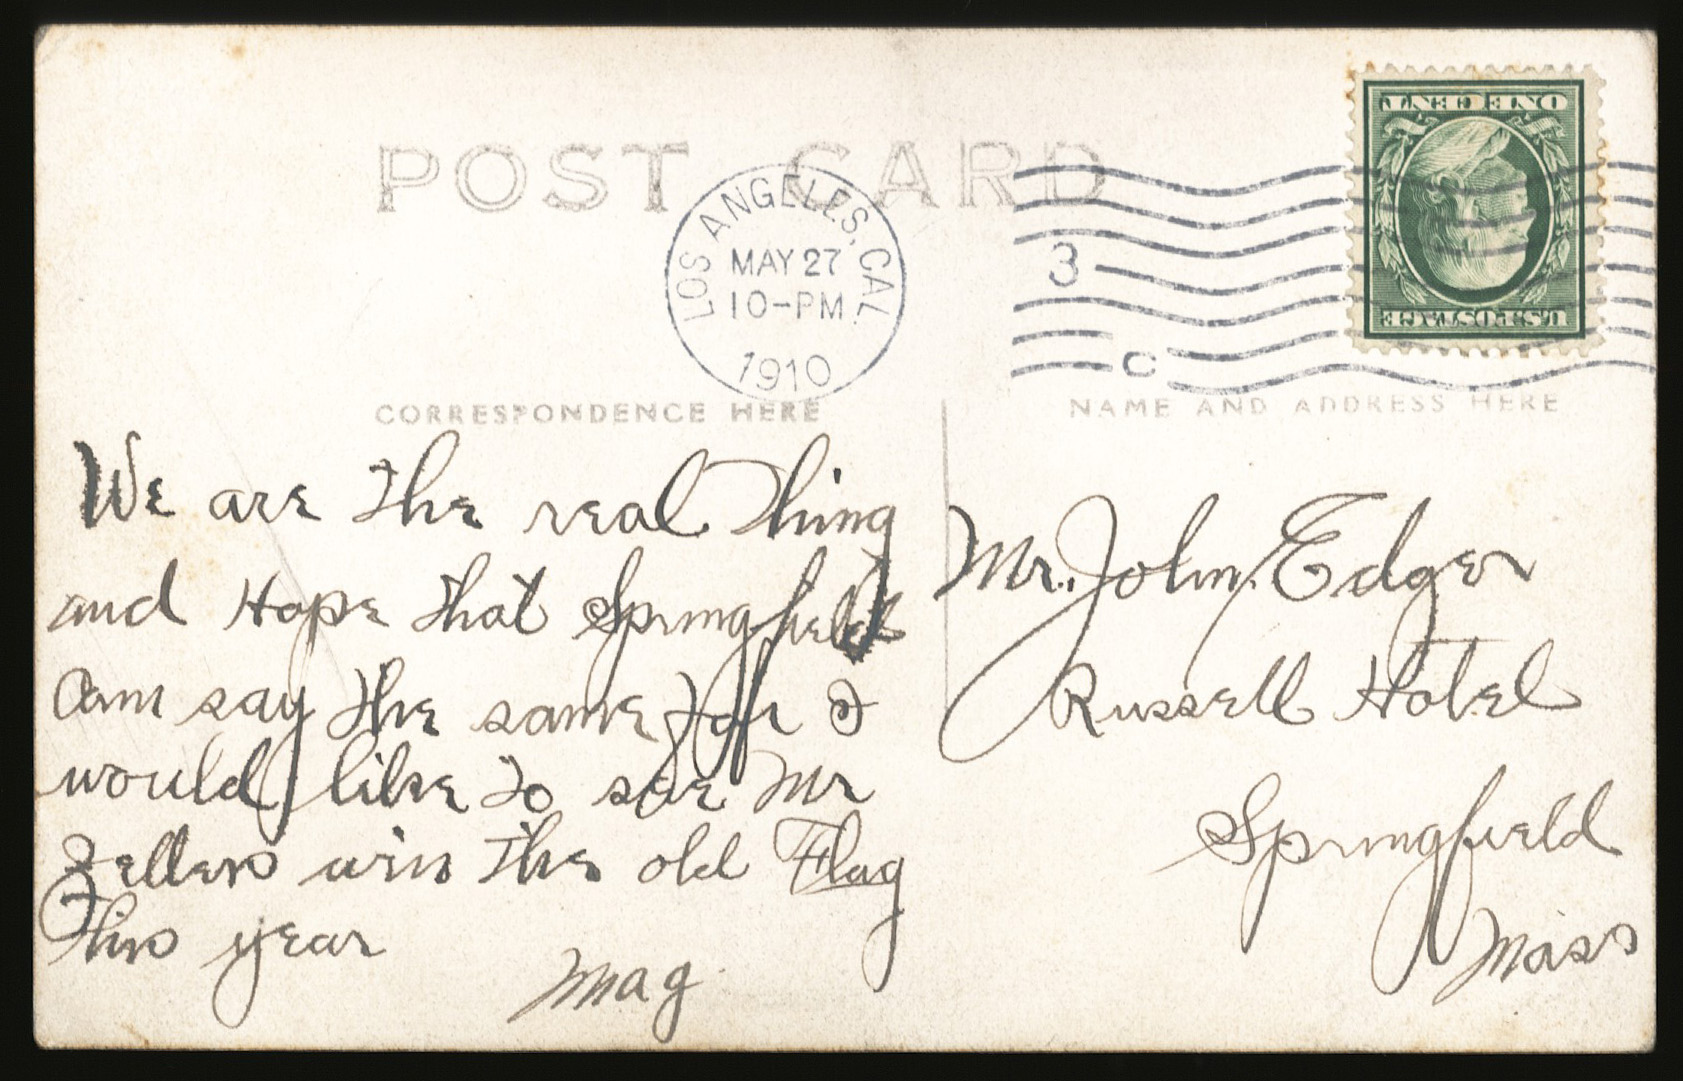 POST CARD
LOS ANGELES, CAL.
MAY 27
10-PM
1910
3
C
ONE CENT
U.S. POSTAGE
CORRESPONDENCE HERE
NAME AND ADDRESS HERE
We are the real Thing
and Hope that Springfield
Can say the same for I
would like to see Mr
Zellers win the old Flag
This year
Mag.
Mr. John Edger
Russell Hotel
Springfield
Mass